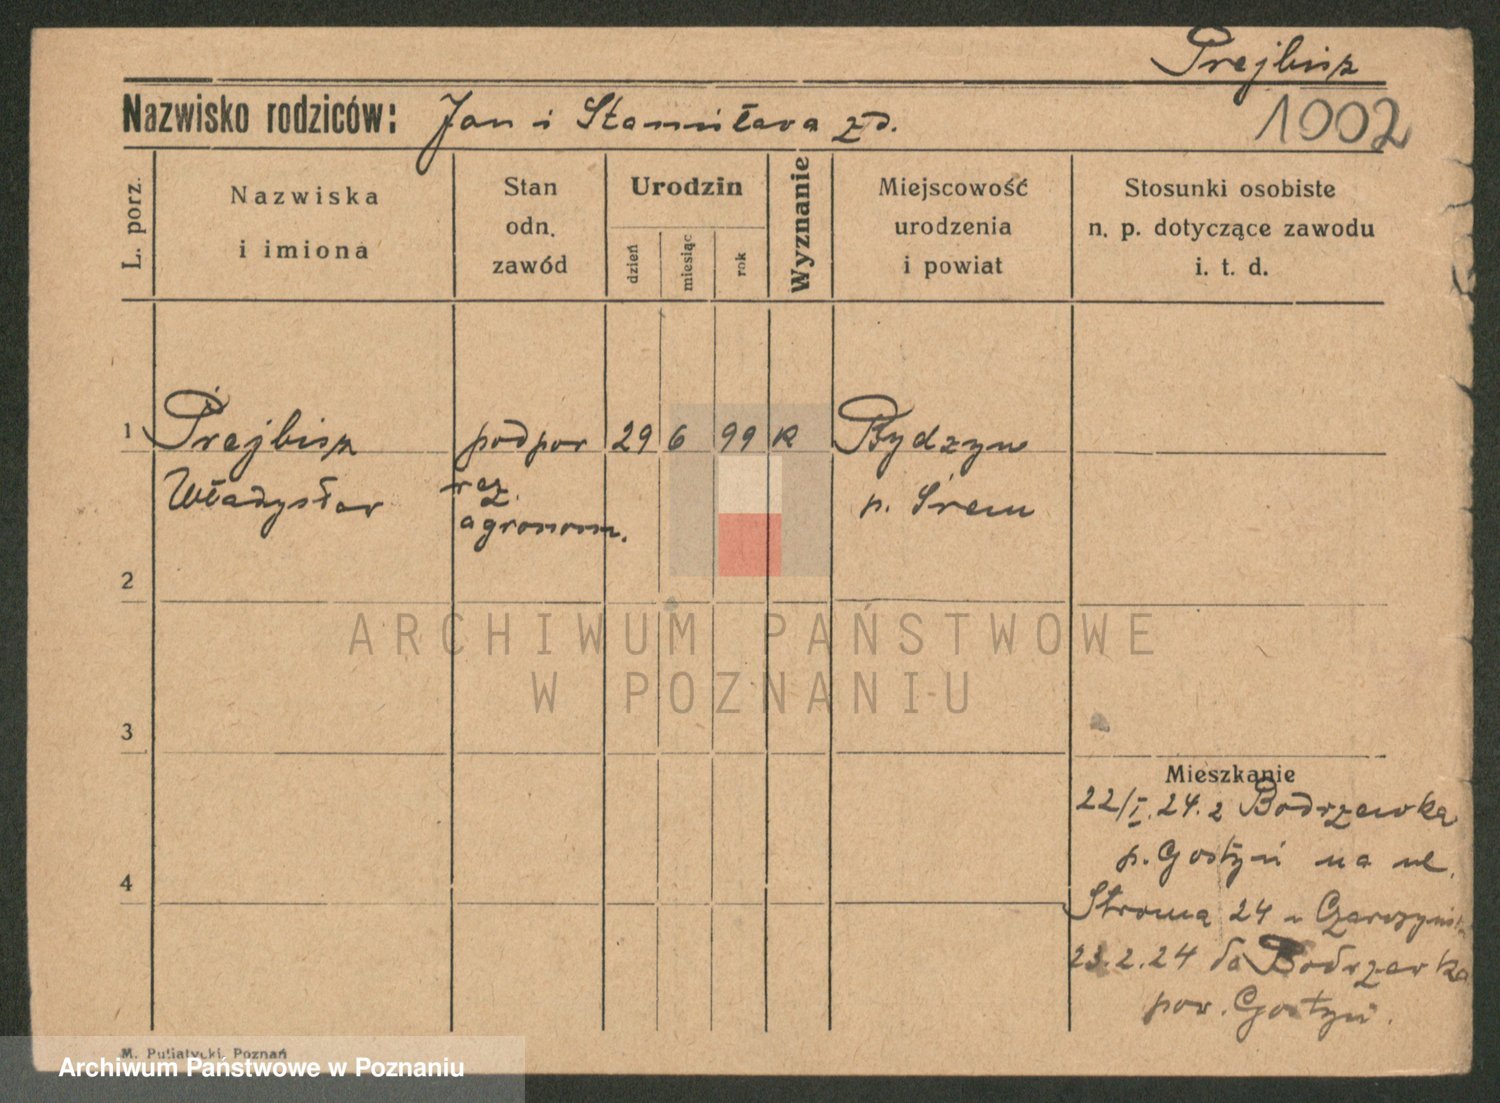 Prejbisz
Nazwisko rodziców: Jan i Stanisława zd.
1002
L. porz.
Nazwiska
i imiona
Stan
odn.
zawód
Urodzin
dzień
miesiąc
rok
Wyznanie
Miejscowość
urodzenia
i powiat
Stosunki osobiste
n. p. dotyczące zawodu
i. t. d.
1 Prejbisz podpor 29 6 99 K
Władysław rez.
agronom.
p. Śrem
2
3
4
ARCHIWUM PAŃSTWOWE
W POZNANIU
Mieszkanie
22/I. 24. z Bodrzewka
p. Gostyń na ul.
Stroma 24
23.2.24 do Bodrzewka
pow. Gostyń.
M. Putiatycki, Poznań
Archiwum Państwowe w Poznaniu